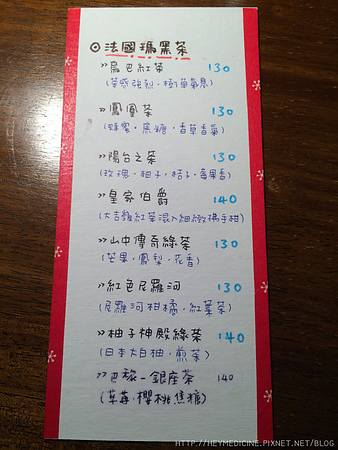 ◎法國瑪黑茶
»烏巴紅茶 130
(茶感強烈,極草氣息)
»鳳凰茶 130
(蜂蜜·焦糖·香草香氣)
»陽台之茶 130
(玫瑰·柚子·桔子·莓果香)
»皇家伯爵 140
(大吉嶺紅茶混入細緻橘手柑)
»山中傳奇綠茶 130
(芒果·鳳梨·花香)
»紅色尼羅河 130
(尼羅河柑橘·紅葉茶)
»柚子神殿綠茶 140
(日本大白柚·煎茶)
»巴旅-銀座茶 140
(草莓·櫻桃焦糖)
HTTP://HEYMEDICINE.PIXNET.NET/BLOG